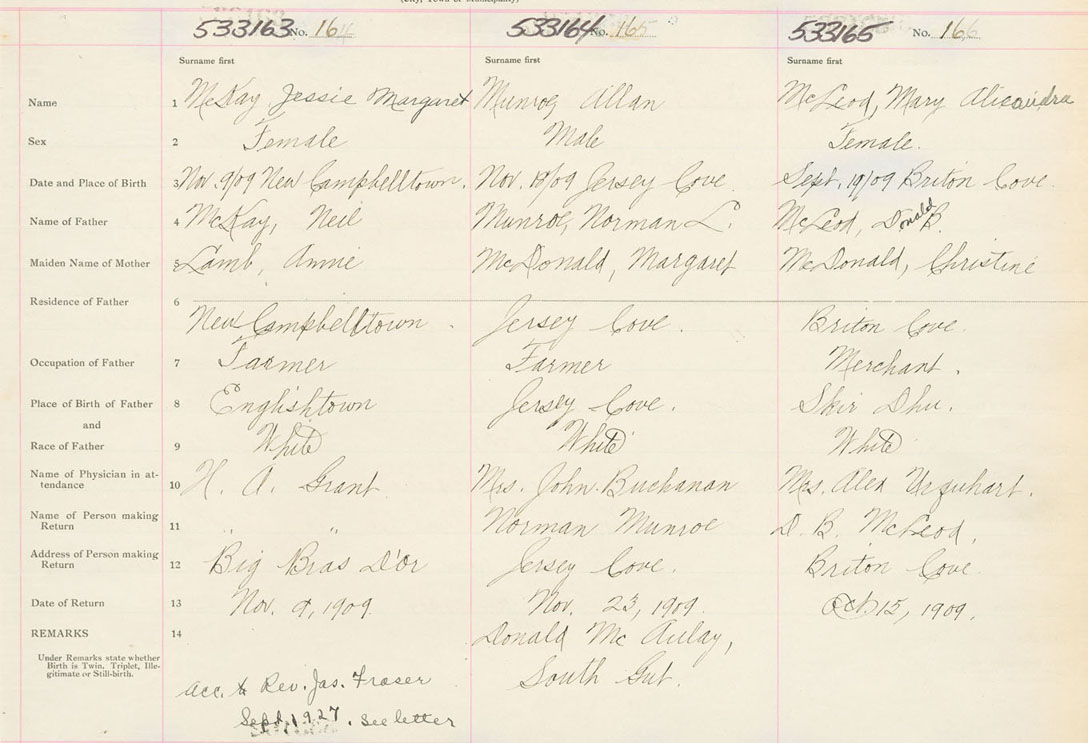 (City, Town or Municipality)
533163 No. 164 533164 No. 165 533165 No. 166
Surname first Surname first Surname first
Name 1 McKay Jessie Margaret Munroe, Allan McLeod, Mary Alisandra
Sex 2 Female Male Female.
Date and Place of Birth 3 Nov. 9/09 New Campbelltown. Nov. 18/09 Jersey Cove Sept. 19/09 Briton Cove.
Name of Father 4 McKay, Neil Munroe, Norman L. McLeod, Donald B.
Maiden Name of Mother 5 Lamb, Annie McDonald, Margaret McDonald, Christine
Residence of Father 6
New Campbelltown. Jersey Cove. Briton Cove.
Occupation of Father 7 Farmer Farmer Merchant.
Place of Birth of Father 8 Englishtown Jersey Cove. Skir Dhu.
and
Race of Father 9 White White White
Name of Physician in at-
tendance 10 H. A. Grant Mrs. John Buchanan Mrs. Alex Urquhart.
Name of Person making
Return 11 " " Norman Munroe D. B. McLeod.
Address of Person making
Return 12 Big Bras D'Or Jersey Cove. Briton Cove.
Date of Return 13 Nov. 9, 1909 Nov. 23, 1909. Oct. 15, 1909.
REMARKS 14 Donald McAulay,
Under Remarks state whether
Birth is Twin, Triplet, Ille-
gitimate or Still-birth.
South Gut.
acc. to Rev. Jas. Fraser
Sept. 1927. see letter